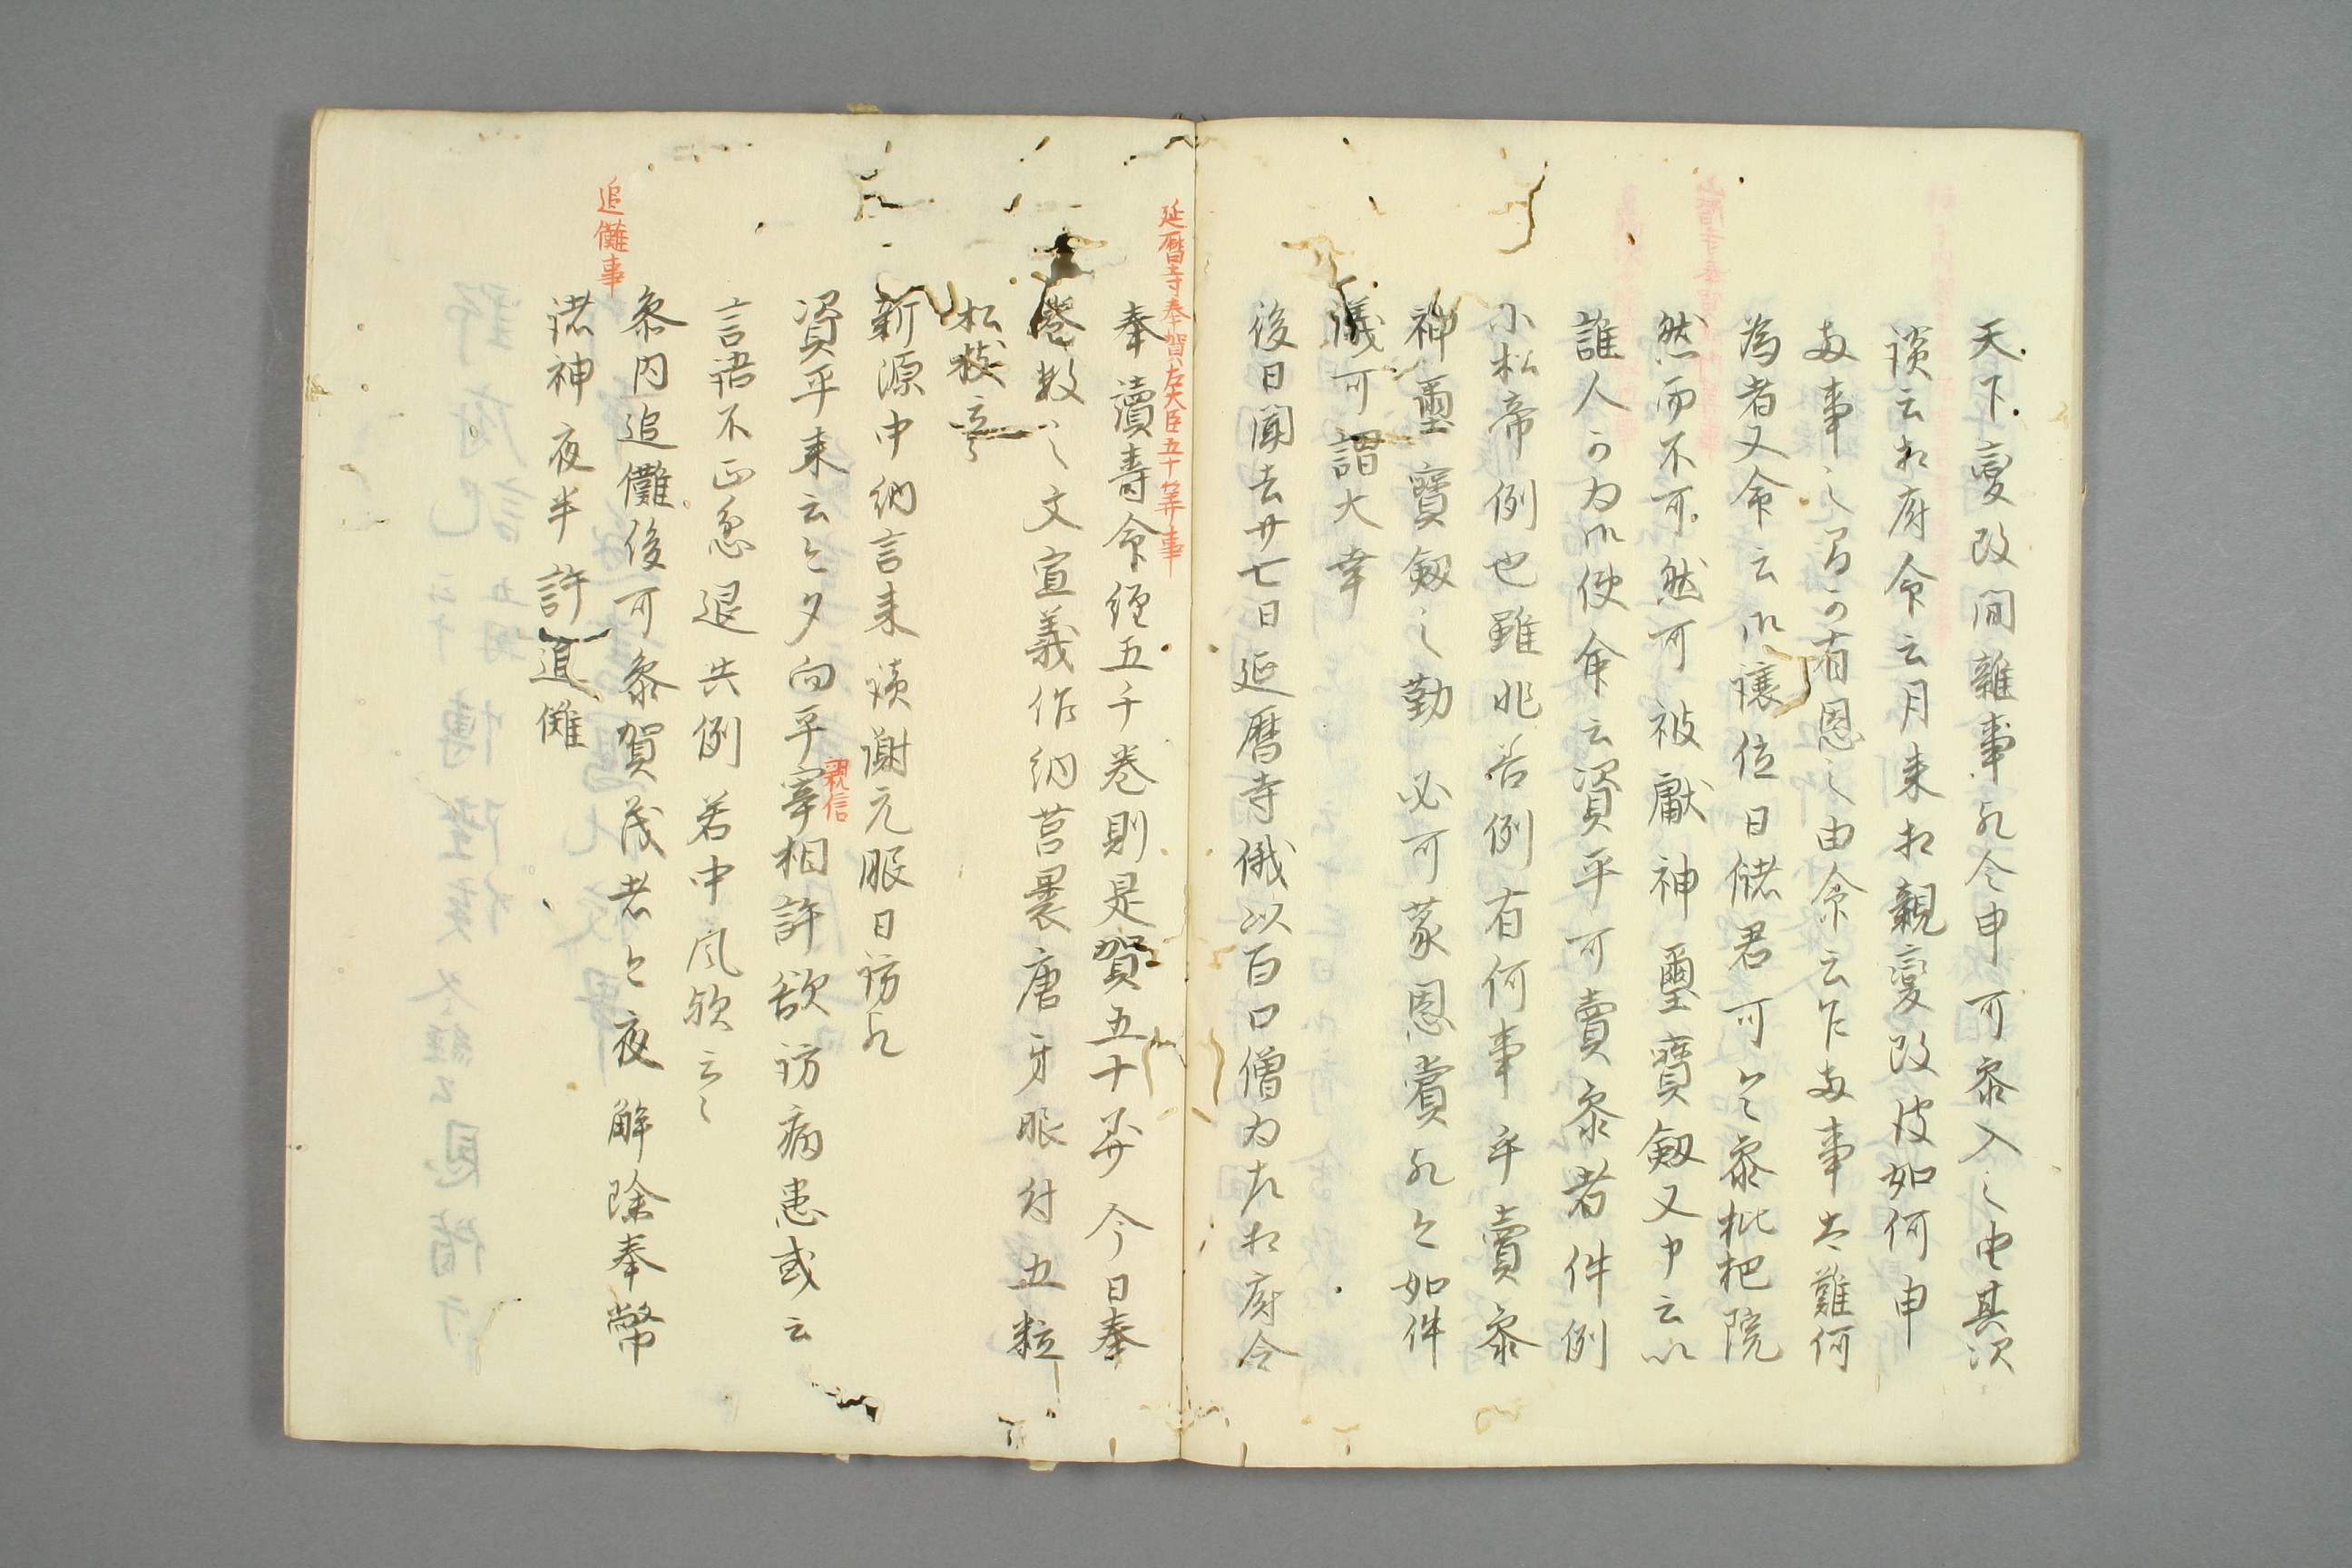 天下変改間雑事都令申可参入之由其次
談云相府命云月来相親変改後如何申
両事之間可有恩之由命云乍両事共難何
為者又命云御譲位日儲君可々参枇杷院
然而不可然可被献神璽寳剱又申云以
誰人可為御使命云資平可賣参者件例
小松帝例也雖非若例有何事乎賣参
神璽寳剱之勤必可蒙恩賞如件
議可謂大幸
後日聞去廿七日延暦寺僧以百口僧為左相府令
延暦寺奉賀左大臣五十筭事
奉讀壽命経五千巻則是賀五十筭今日奉
巻数之文宣義作納莒裹唐牙眼付五粒
松枝云々
新源中納言来談謝元服日訪
資平来云々夕向平宰相許欲訪病患或云
親信
言語不正忽退失例若中風欤云々
追儺事
参内追儺後可参賀茂者今夜解除奉幣
諸神夜半許追儺